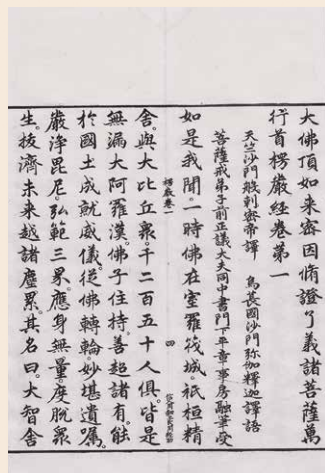 大佛頂如来密因脩證了義諸菩薩萬
行首楞嚴經卷第一
天竺沙門般剌密帝譯　烏萇國沙門弥伽釋迦譯語
菩薩戒弟子前正議大夫同中書門下平章事房融筆受
如是我聞。一時佛在室羅筏城。祇桓精
楞嚴卷一
四
舍。與大比丘衆。千二百五十人俱。皆是
無漏大阿羅漢。佛子住持。善超諸有。能
於國土成就威儀。從佛轉輪。妙堪遺囑。
嚴淨毘尼。弘範三界。應身無量。度脱衆
生。拔濟未来越諸塵累。其名曰。大智舍